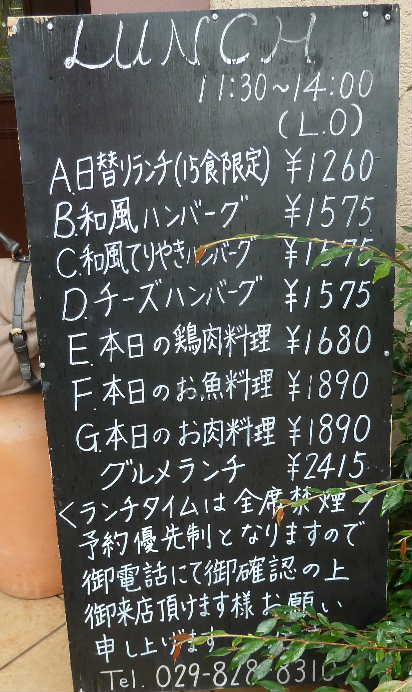 LUNCH
11:30~14:00
(L.O)
A.日替りランチ(15食限定) ¥1260
B.和風ハンバーグ ¥1575
C.和風てりやきハンバーグ ¥1575
D.チーズハンバーグ ¥1575
E.本日の鶏肉料理 ¥1680
F.本日のお魚料理 ¥1890
G.本日のお肉料理 ¥1890
グルメランチ ¥2415
<ランチタイムは全席禁煙>
予約優先制となりますので
御電話にて御確認の上
御来店頂けます様お願い
申し上げます
Tel. 029-828-8310